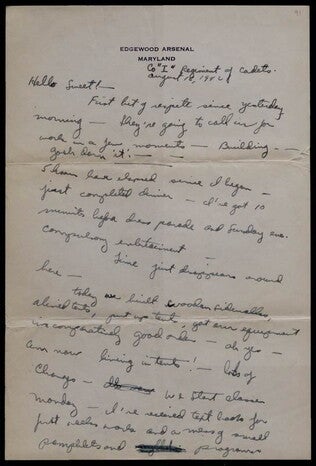 91
EDGEWOOD ARSENAL
MARYLAND
Co "I" Regiment of Cadets.
August 18, 19
Hello Sweet! —
First bit of respite since yesterday
morning — They're going to call us for
work in a few moments — Building —
Gosh darn it! — —
5 hours have elapsed since I began —
just completed dinner — I've got 10
minutes before dress parade and Sunday eve.
compulsory entertainment —
Time just disappears around
here —
today we built wooden sidewalks,
aligned tents, put up tents, got our equipment
in comparatively good order — oh yes —
am now living in tents! — lots of
change — We start classes
Monday — I've received text books for
first weeks work and a mess of small
pamphlets and programs